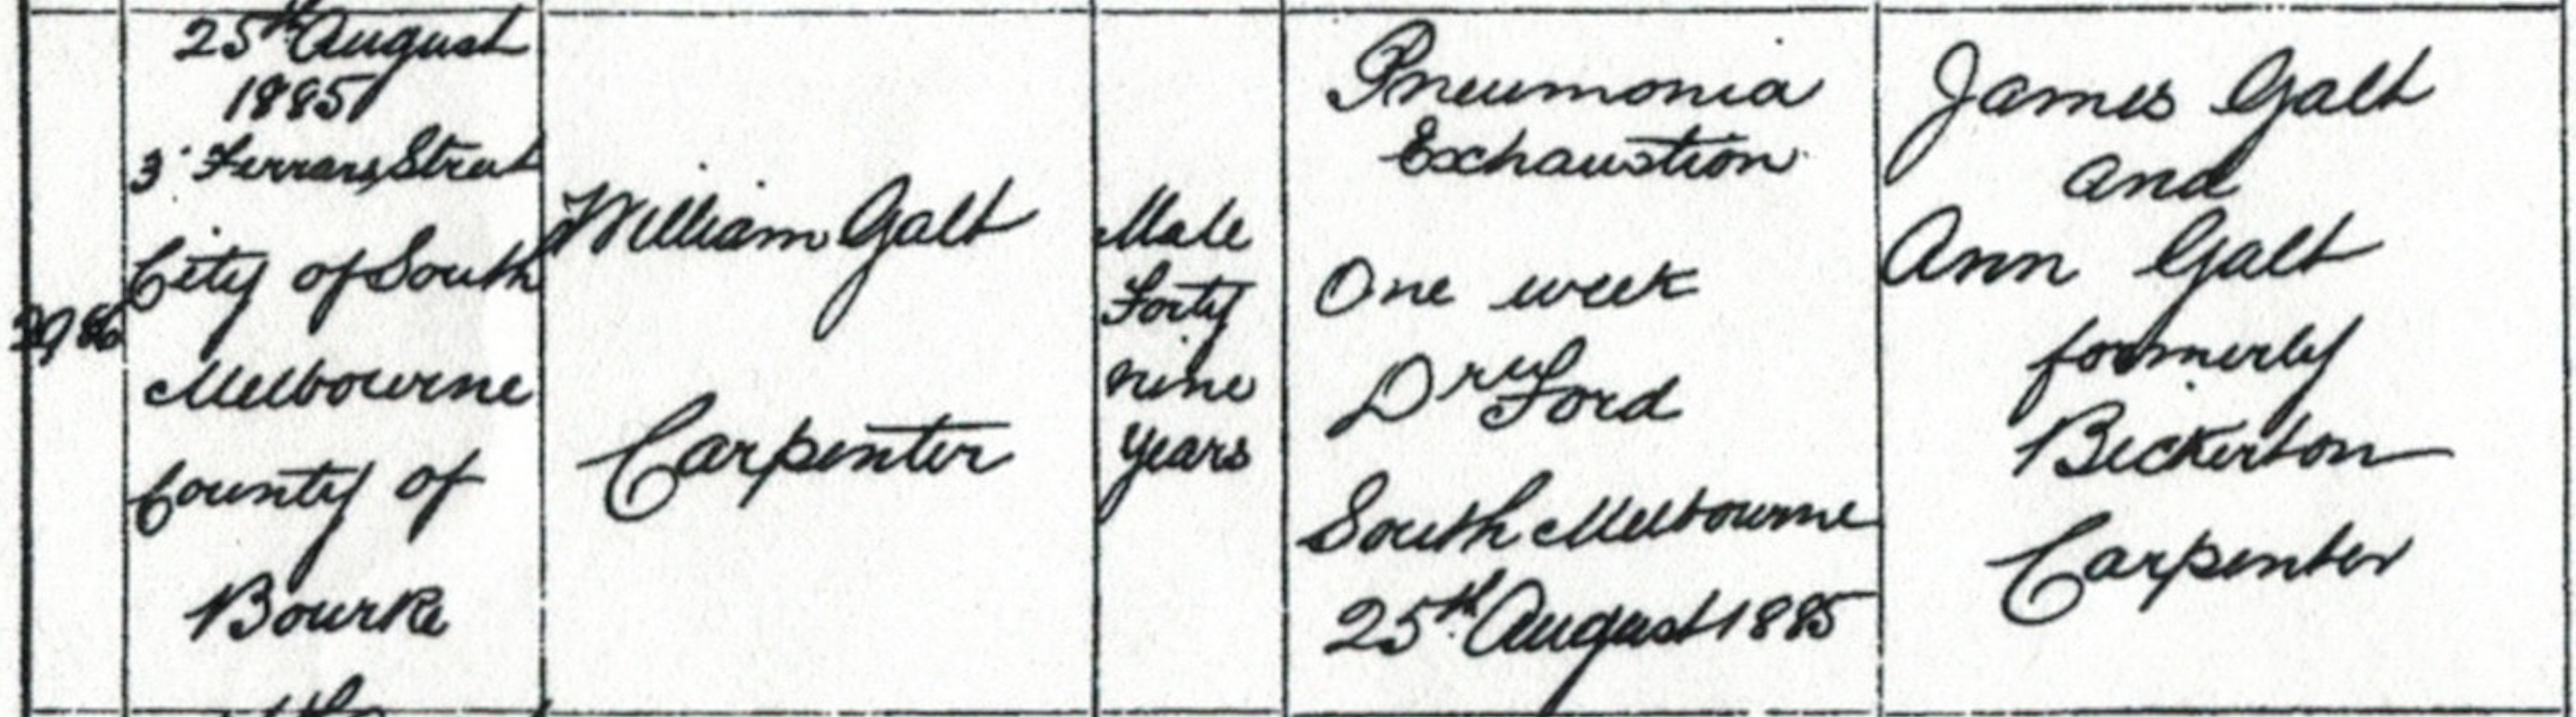 25th August
1885
3 Ferrars Street
City of South
Melbourne
County of
Bourke
William Galt
Carpenter
Male
Forty
nine
years
Pneumonia
Exhaustion
One week
Dr Ford
South Melbourne
25th August 1885
James Galt
and
Ann Galt
formerly
Bickerton
Carpenter